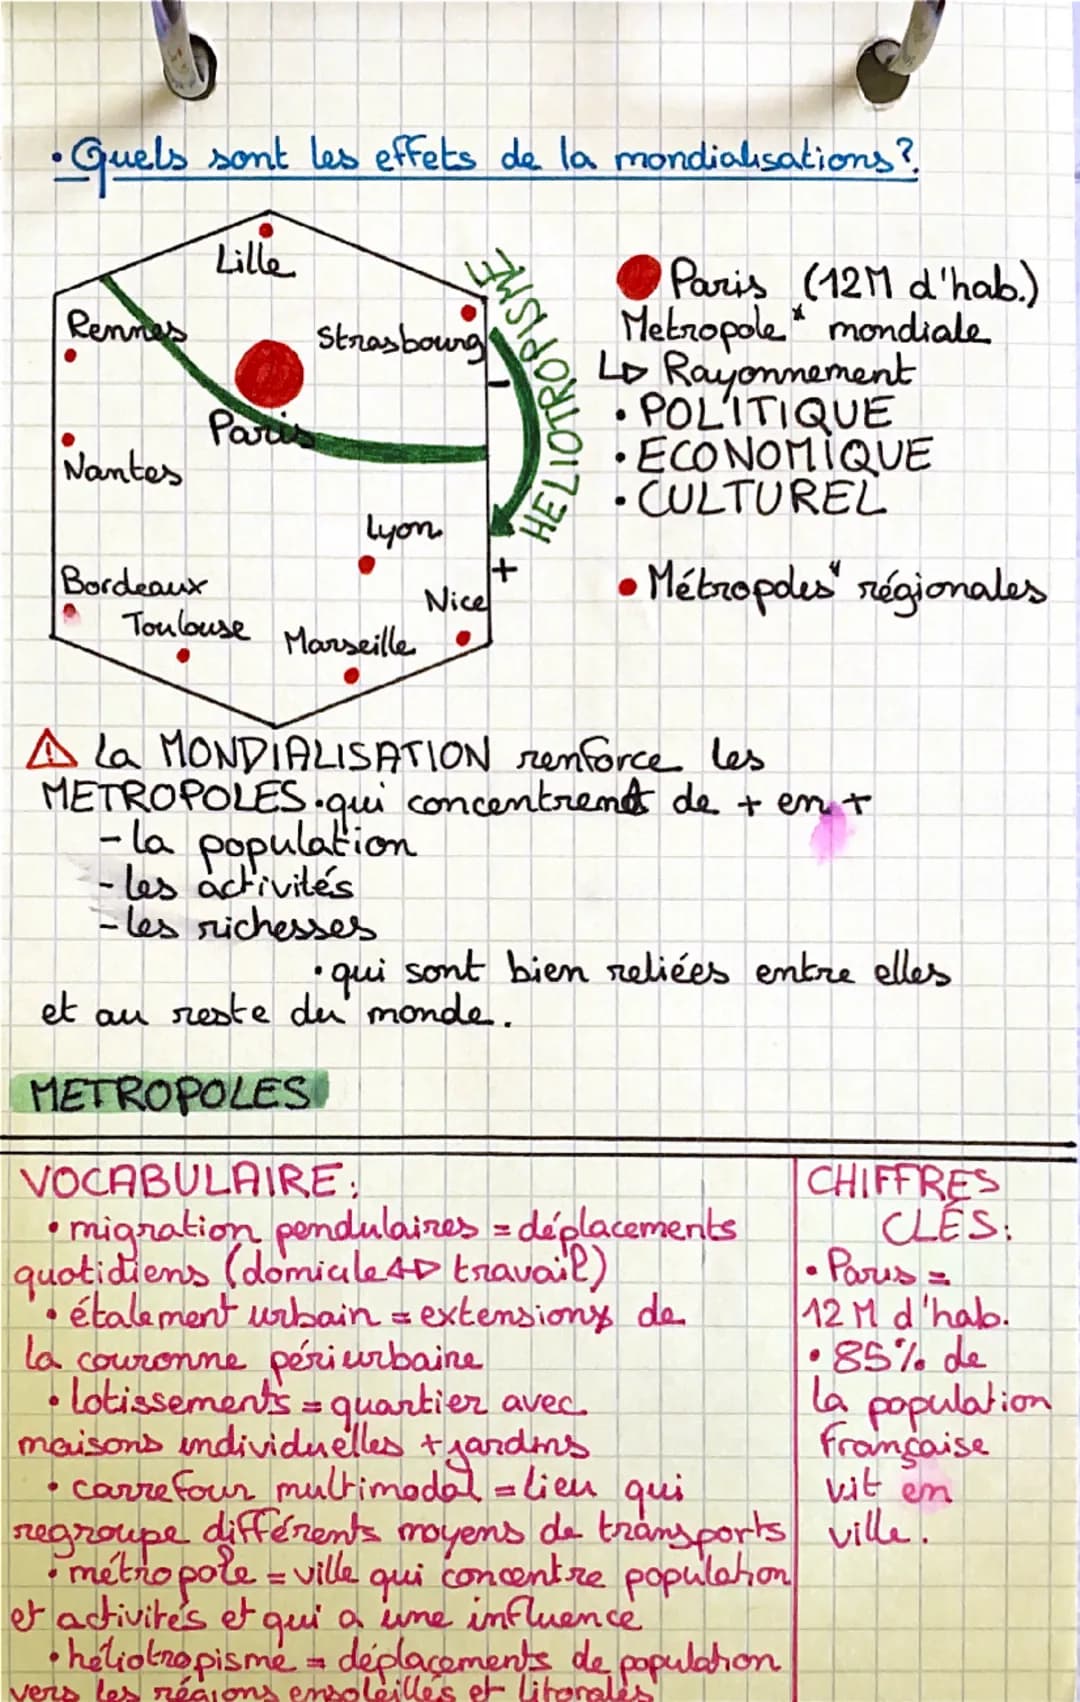 • Quels sont les effets de la mondialisations?
Lille
Rennes
Strasbourg
Paris
Nantes
Lyon
Bordeaux
Nice
Toulouse
Marseille
-
+
HELIOTROPISME
Paris (12M d'hab.)
Metropole* mondiale
↳ Rayonnement
• POLITIQUE
• ECONOMIQUE
• CULTUREL
• Métropoles* régionales
⚠ La MONDIALISATION renforce les
METROPOLES • qui concentrent de + en +
- la population
- les activités
- les richesses
• qui sont bien reliées entre elles
et au reste du monde.
METROPOLES
VOCABULAIRE:
• migration pendulaires = déplacements
quotidiens (domicile ↔ travail)
• étalement urbain = extension de
la couronne périurbaine
• lotissements = quartier avec
maisons individuelles + jardins
• carrefour multimodal = lieu qui
regroupe différents moyens de transports
• métropole = ville qui concentre population
et activités et qui a une influence
• héliotropisme = déplacements de population
vers les régions ensoleillés et litorales
CHIFFRES
CLÉS:
• Paris =
12 M d'hab.
• 85% de
la population
française
vit en
ville.